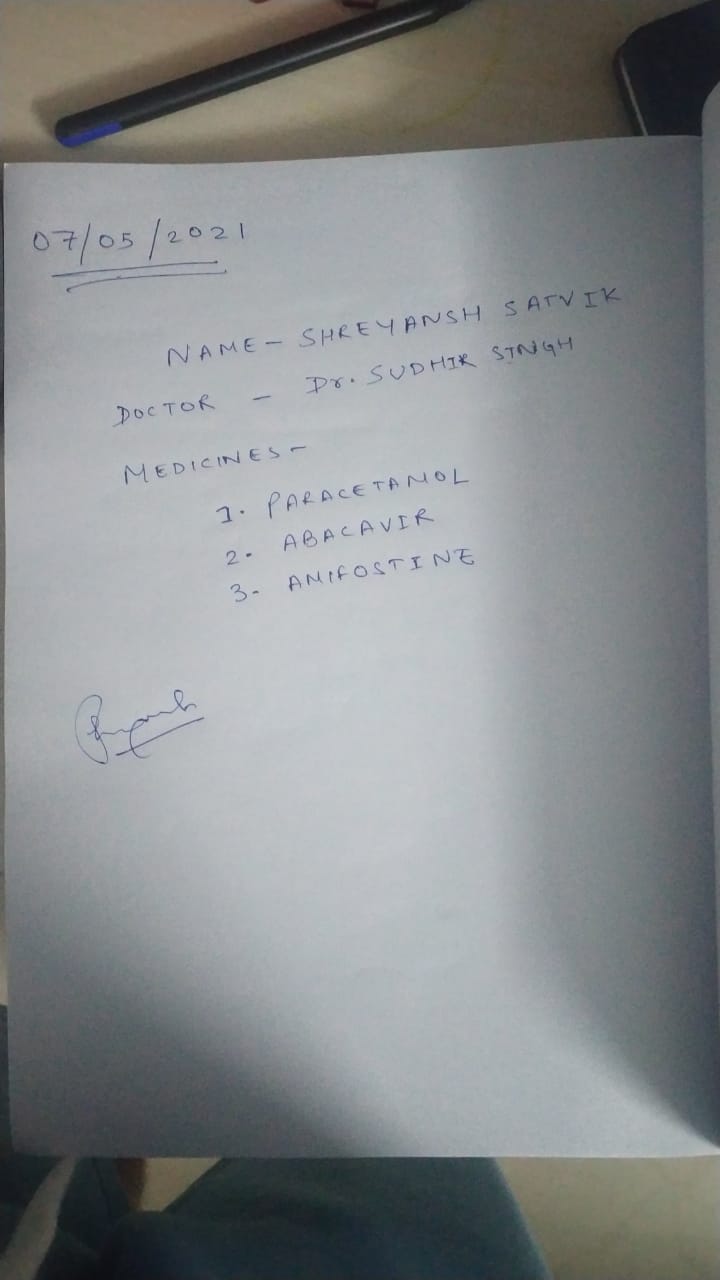 07/05/2021
NAME - SHREYANSH SATVIK
DOCTOR - Dr. SUDHIR SINGH
MEDICINES -
1. PARACETAMOL
2. ABACAVIR
3. AMIFOSTINE